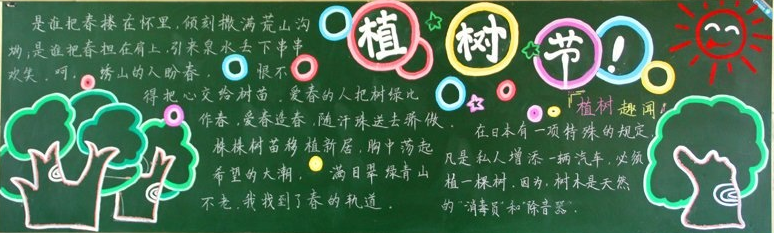 植树节！
是谁把春搂在怀里，倾刻撒满荒山沟
坳；是谁把春担在肩上，引来泉水去下串串
欢笑。呵，绣山的人盼春，恨不
得把心交给树苗，爱春的人把树绿比
作春，爱春造春，随汗珠送去骄傲。
株株树苗移植新居，胸中荡起
希望的大潮，满目翠绿青山
不老，我找到了春的轨道。
植树趣闻
在日本有一项特殊的规定，
凡是私人增添一辆汽车，必须
植一棵树，因为，树木是天然
的“消毒员”和“除音器”。